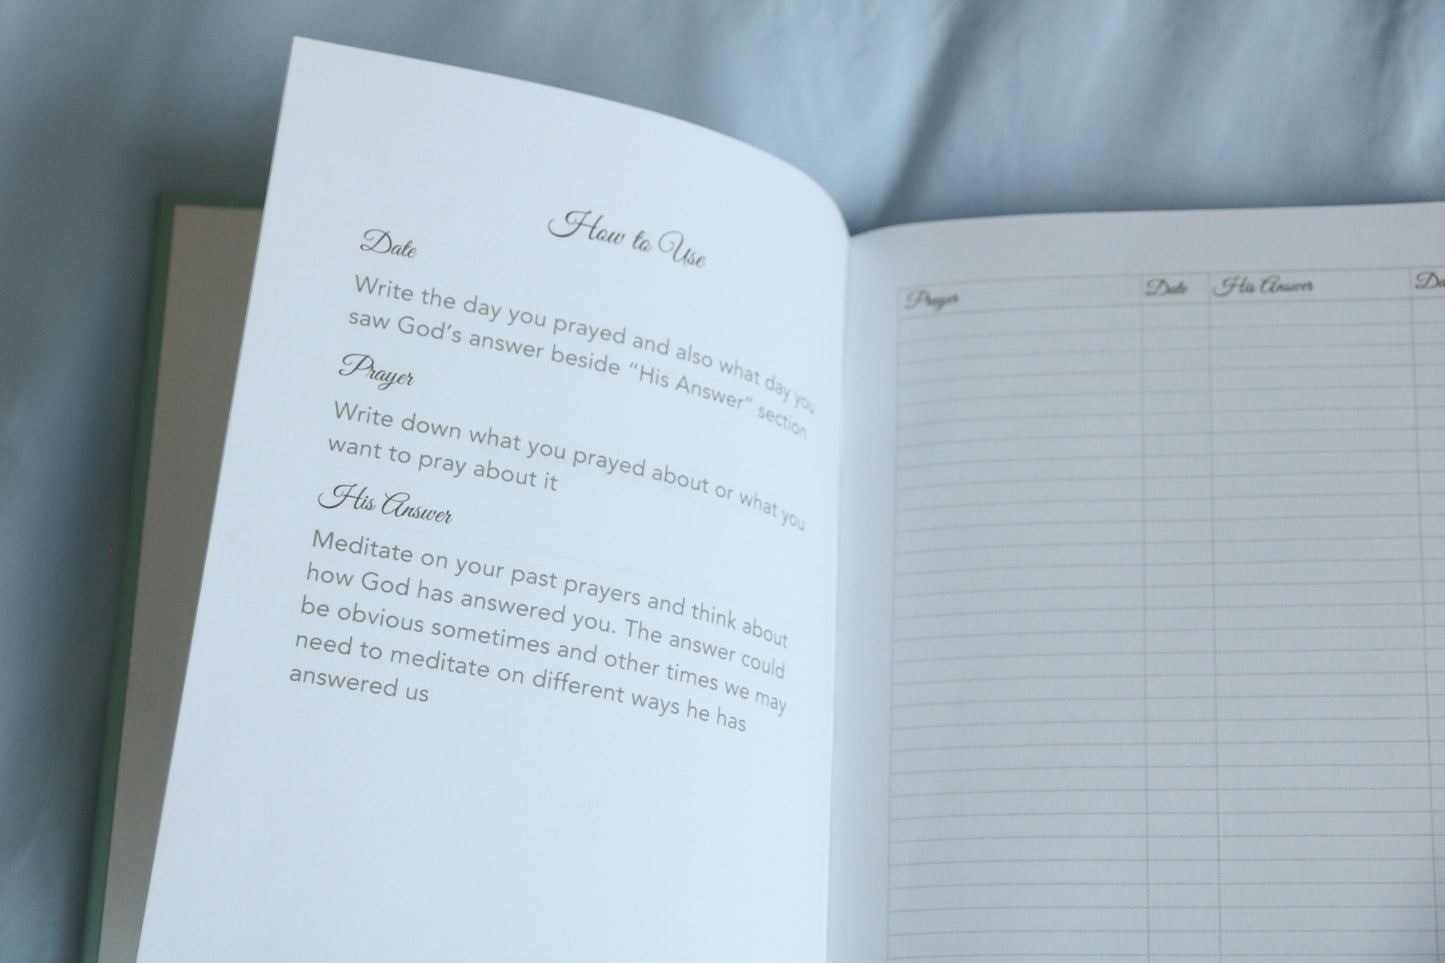 How to Use
Date
Write the day you prayed and also what day you
saw God's answer beside "His Answer" section
Prayer
Write down what you prayed about or what you
want to pray about it
His Answer
Meditate on your past prayers and think about
how God has answered you. The answer could
be obvious sometimes and other times we may
need to meditate on different ways he has
answered us
Prayer Date His Answer